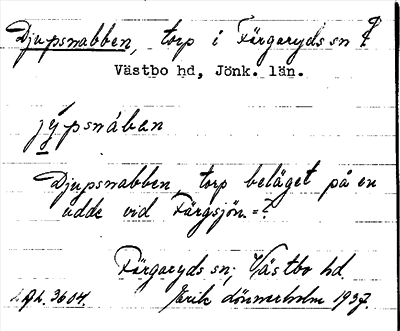 Djupsnabben, torp i Färgaryds sn
Västbo hd, Jönk. län.
jýpsnában
Djupsnabben, torp beläget på en
udde vid Färgsjön.=?
Färgaryds sn; Västbo hd
3604. Erik 1937.